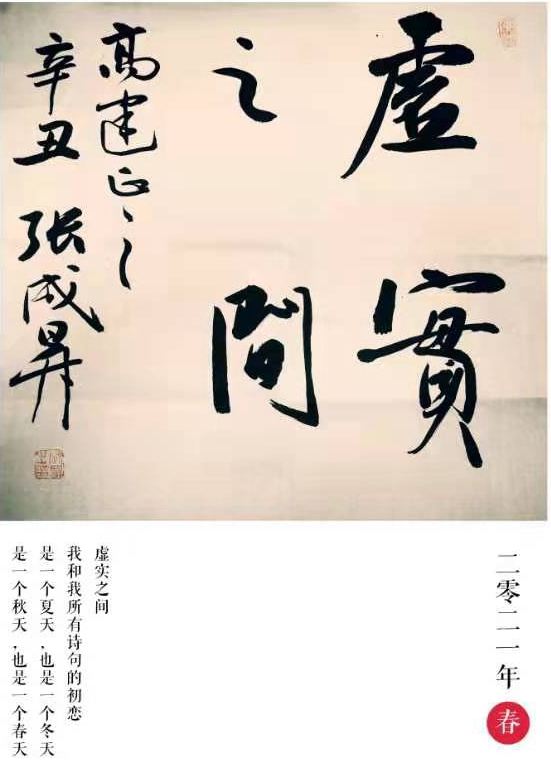 虚實
之間
高建正之
辛丑 张成昇
二零二一年 春
虚实之间
我和我所有诗句的初恋
是一个夏天,也是一个冬天
是一个秋天,也是一个春天